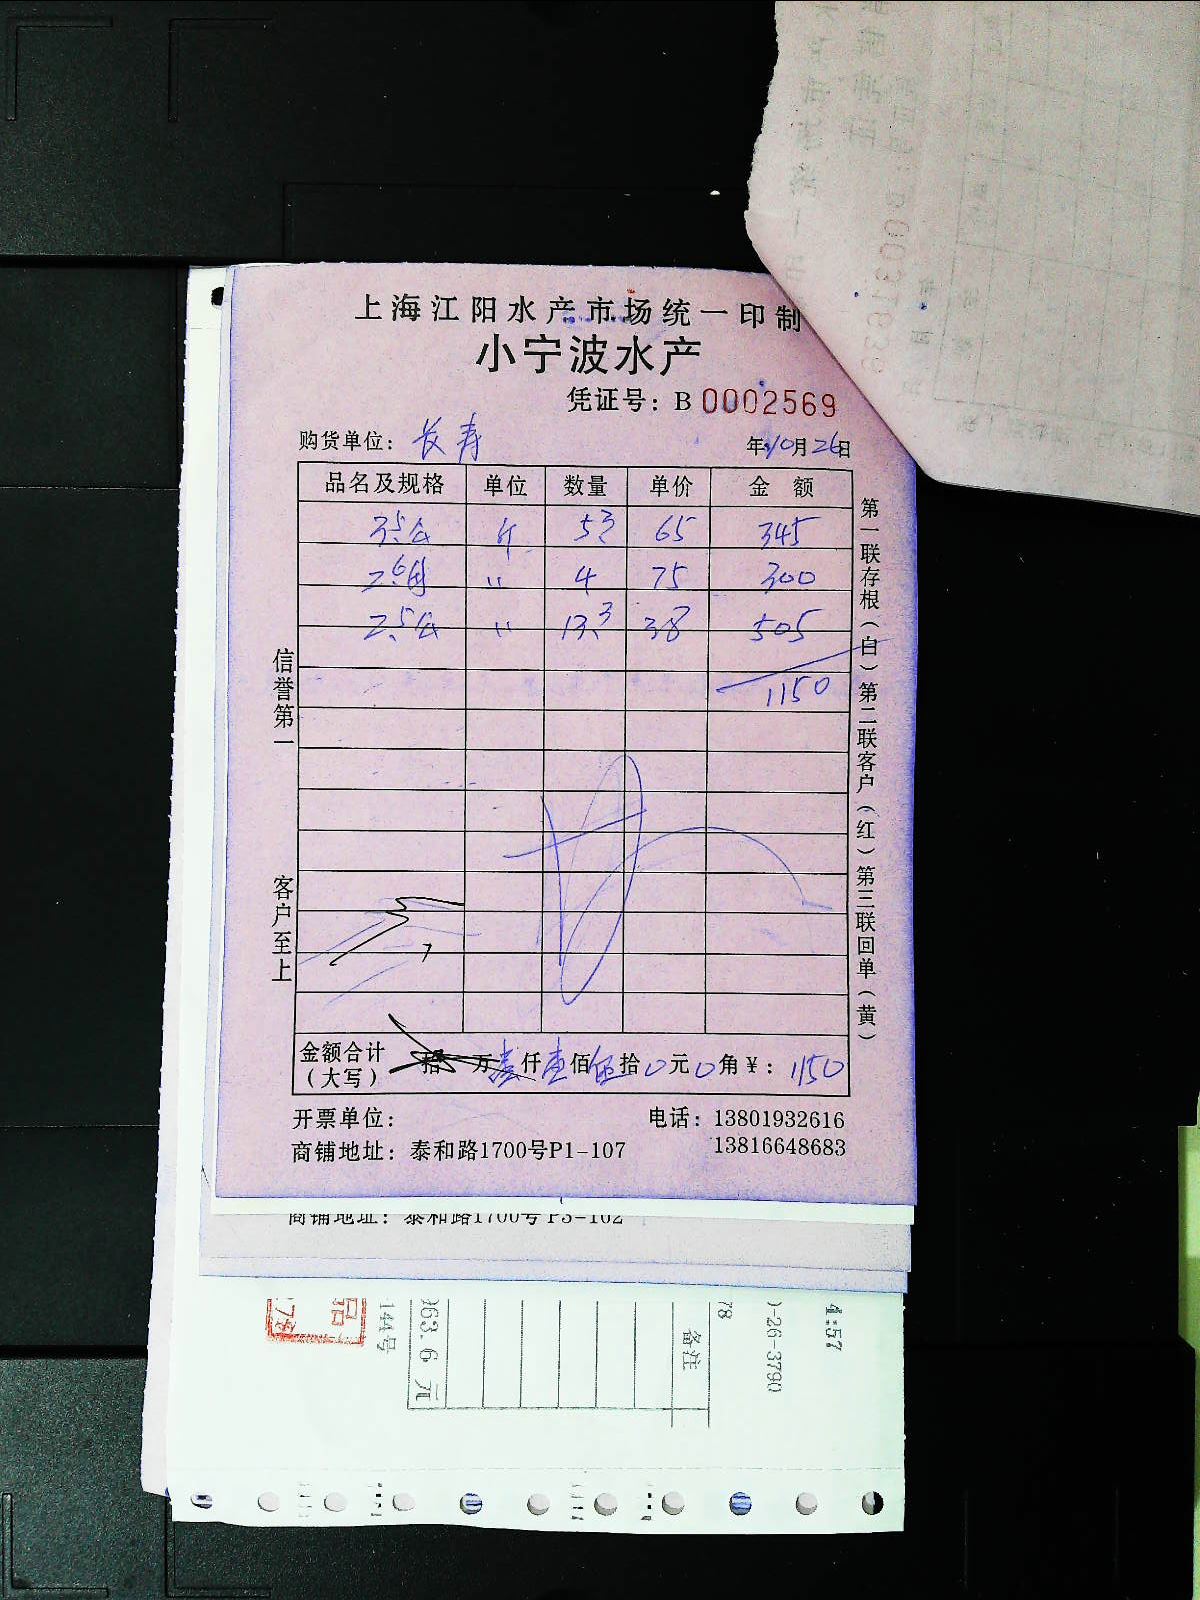 上海江阳水产市场统一印制
小宁波水产
凭证号：B 0002569
购货单位：长寿 年10月26日
品名及规格 单位 数量 单价 金 额
3.5公 斤 5.3 65 345
2.6母 〃 4 75 300
2.5公 〃 13.3 38 505
1150
信誉第一
客户至上
第一联存根（白）第二联客户（红）第三联回单（黄）
金额合计（大写） 拾 万 壹 仟 壹 佰 伍 拾 0 元 0 角 ¥：1150
开票单位： 电话：13801932616
商铺地址：泰和路1700号P1-107 13816648683
商铺地址：泰和路1700号P3-102
4:57
)-26-3790
78
备注
63.6 元
144号